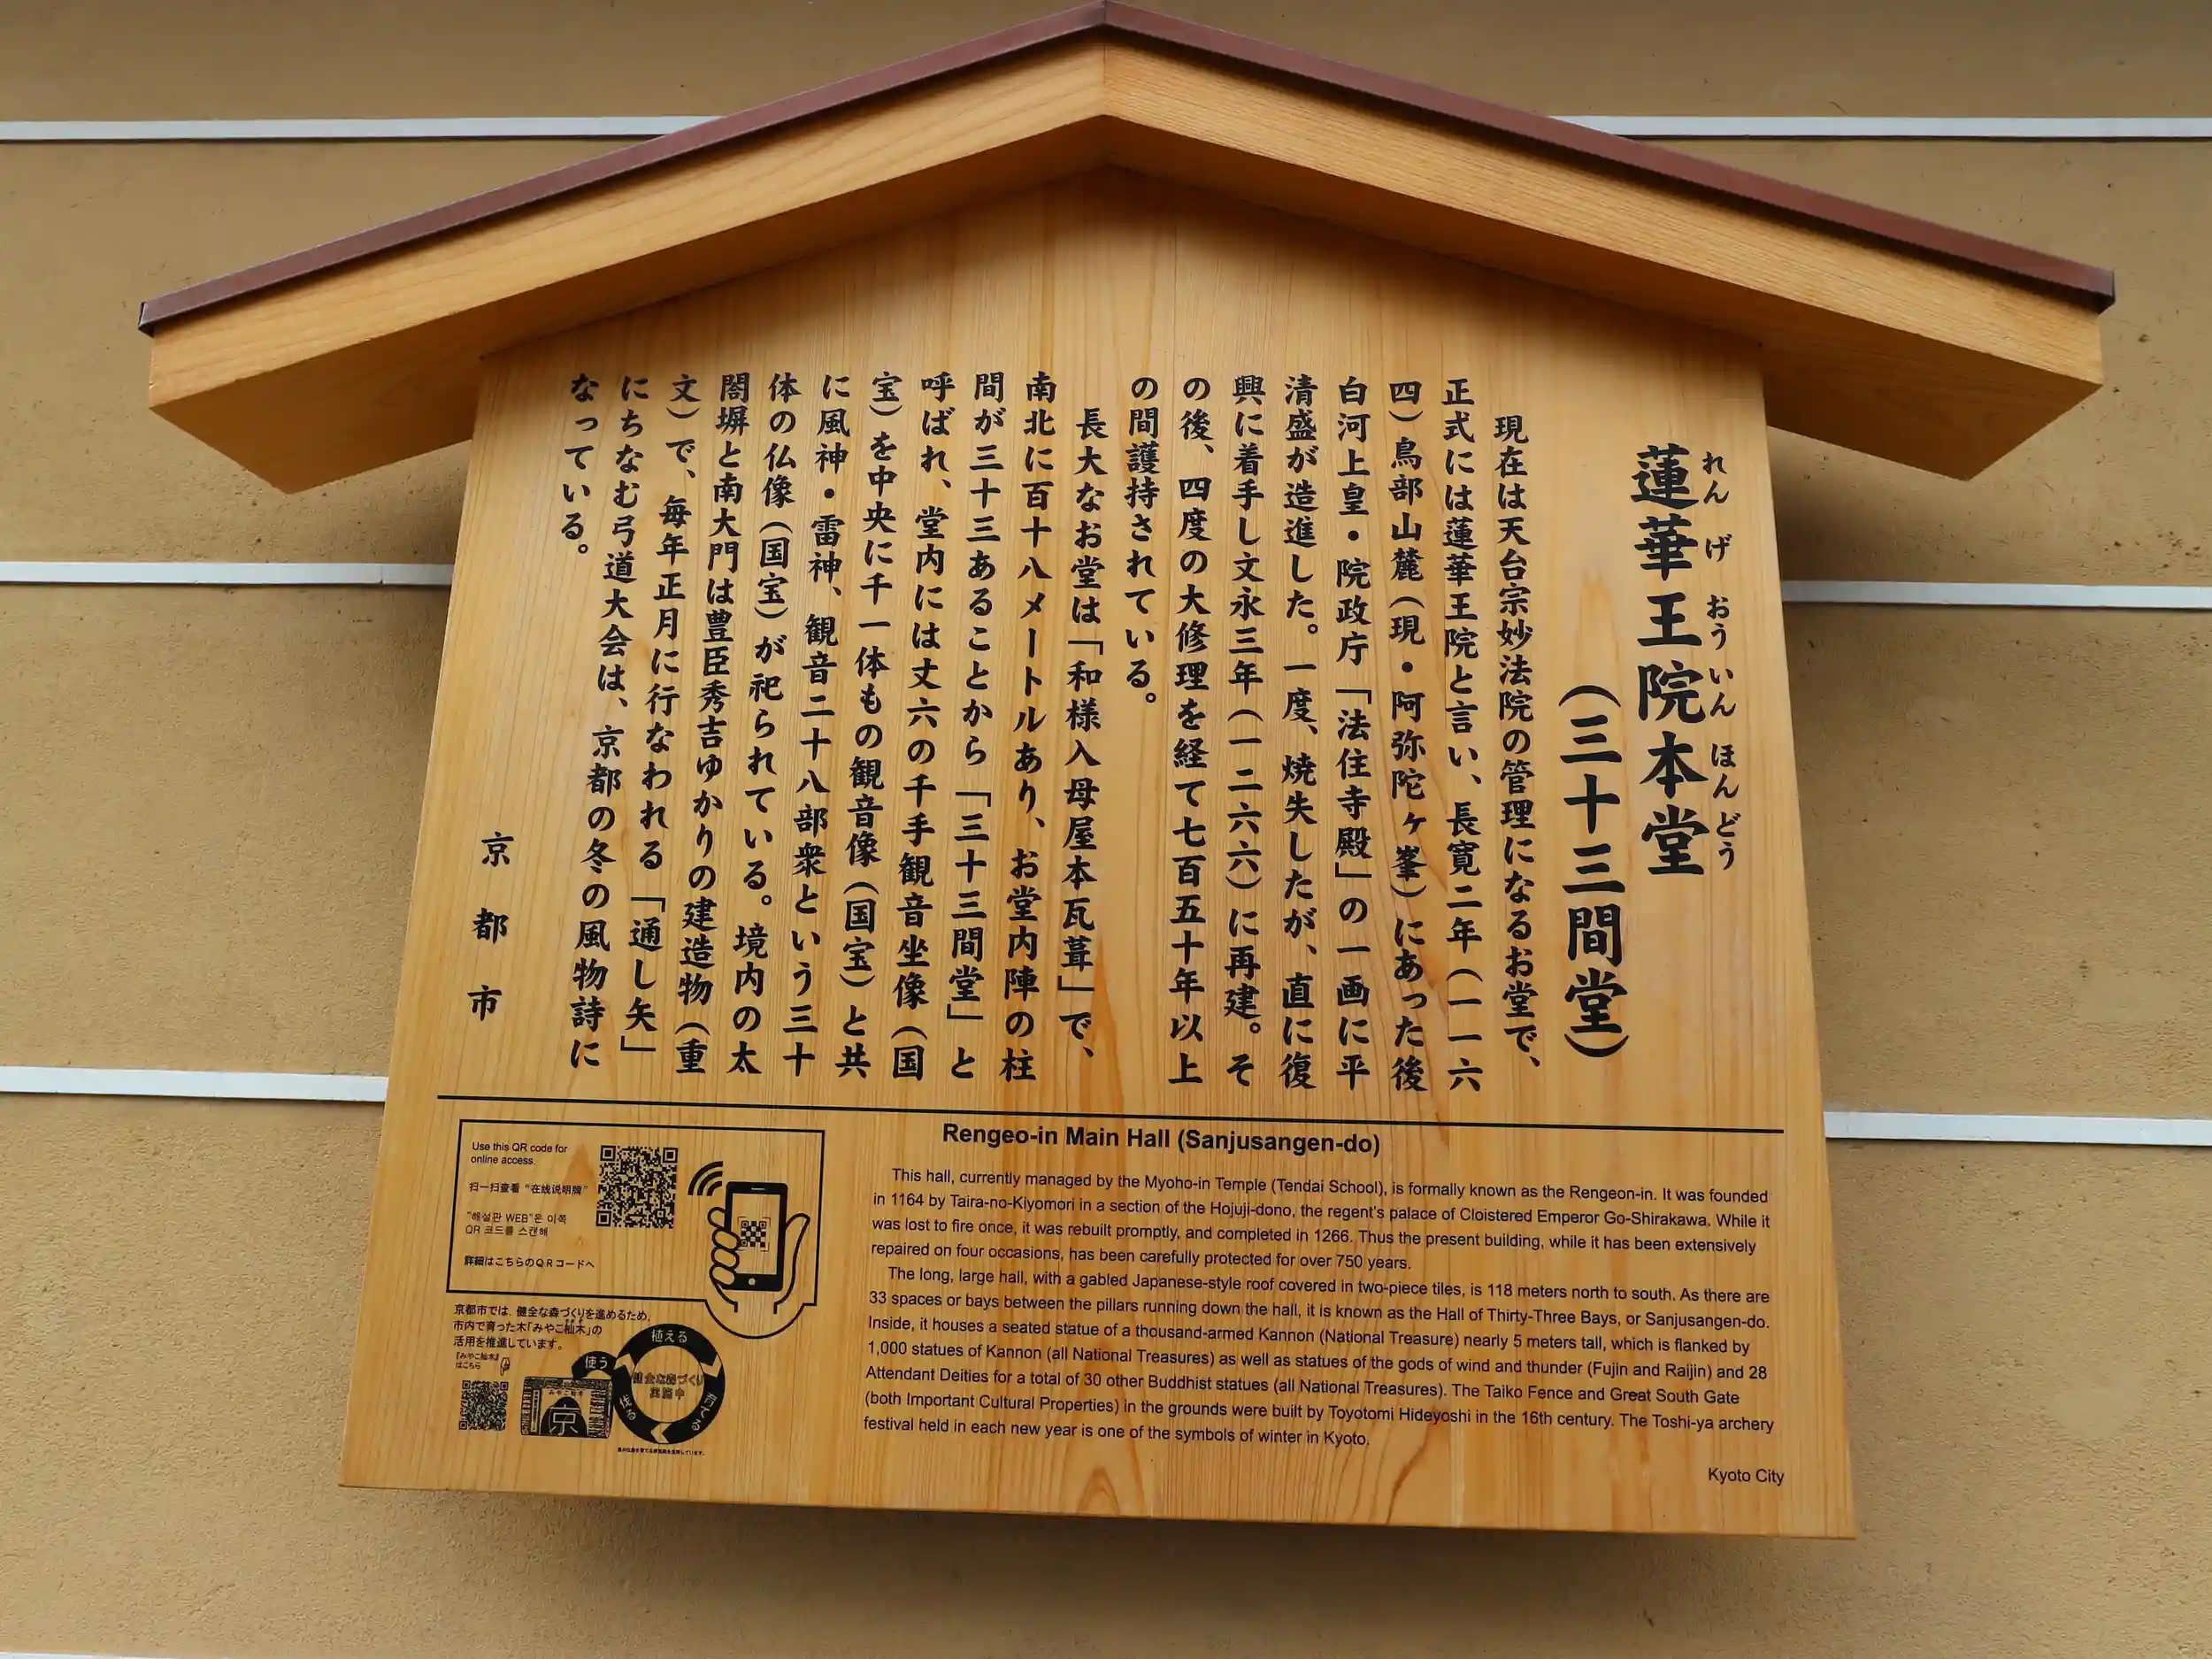 蓮華王院本堂
れんげおういんほんどう
（三十三間堂）
現在は天台宗妙法院の管理になるお堂で、
正式には蓮華王院と言い、長寛二年（一一六
四）鳥部山麓（現・阿弥陀ヶ峯）にあった後
白河上皇・院政庁「法住寺殿」の一画に平
清盛が造進した。一度、焼失したが、直に復
興に着手し文永三年（一二六六）に再建。そ
の後、四度の大修理を経て七百五十年以上
の間護持されている。
長大なお堂は「和様入母屋本瓦葺」で、
南北に百十八メートルあり、お堂内陣の柱
間が三十三あることから「三十三間堂」と
呼ばれ、堂内には丈六の千手観音坐像（国
宝）を中央に千一体もの観音像（国宝）と共
に風神・雷神、観音二十八部衆という三十
体の仏像（国宝）が祀られている。境内の太
閤塀と南大門は豊臣秀吉ゆかりの建造物（重
文）で、毎年正月に行なわれる「通し矢」
にちなむ弓道大会は、京都の冬の風物詩に
なっている。
京都市
Use this QR code for
online access.
扫一扫查看“在线说明牌”
“해설판 WEB”은 이쪽
QR 코드를 스캔해
詳細はこちらのQRコードへ
京都市では、健全な森づくりを進めるため、
市内で育った木「みやこ杣木」の
活用を推進しています。
『みやこ杣木』
はこちら
みやこ杣木
京
植える
育てる
伐る
使う
健全な森づくり
実施中
Rengeo-in Main Hall (Sanjusangen-do)
This hall, currently managed by the Myoho-in Temple (Tendai School), is formally known as the Rengeon-in. It was founded
in 1164 by Taira-no-Kiyomori in a section of the Hojuji-dono, the regent's palace of Cloistered Emperor Go-Shirakawa. While it
was lost to fire once, it was rebuilt promptly, and completed in 1266. Thus the present building, while it has been extensively
repaired on four occasions, has been carefully protected for over 750 years.
The long, large hall, with a gabled Japanese-style roof covered in two-piece tiles, is 118 meters north to south. As there are
33 spaces or bays between the pillars running down the hall, it is known as the Hall of Thirty-Three Bays, or Sanjusangen-do.
Inside, it houses a seated statue of a thousand-armed Kannon (National Treasure) nearly 5 meters tall, which is flanked by
1,000 statues of Kannon (all National Treasures) as well as statues of the gods of wind and thunder (Fujin and Raijin) and 28
Attendant Deities for a total of 30 other Buddhist statues (all National Treasures). The Taiko Fence and Great South Gate
(both Important Cultural Properties) in the grounds were built by Toyotomi Hideyoshi in the 16th century. The Toshi-ya archery
festival held in each new year is one of the symbols of winter in Kyoto.
Kyoto City